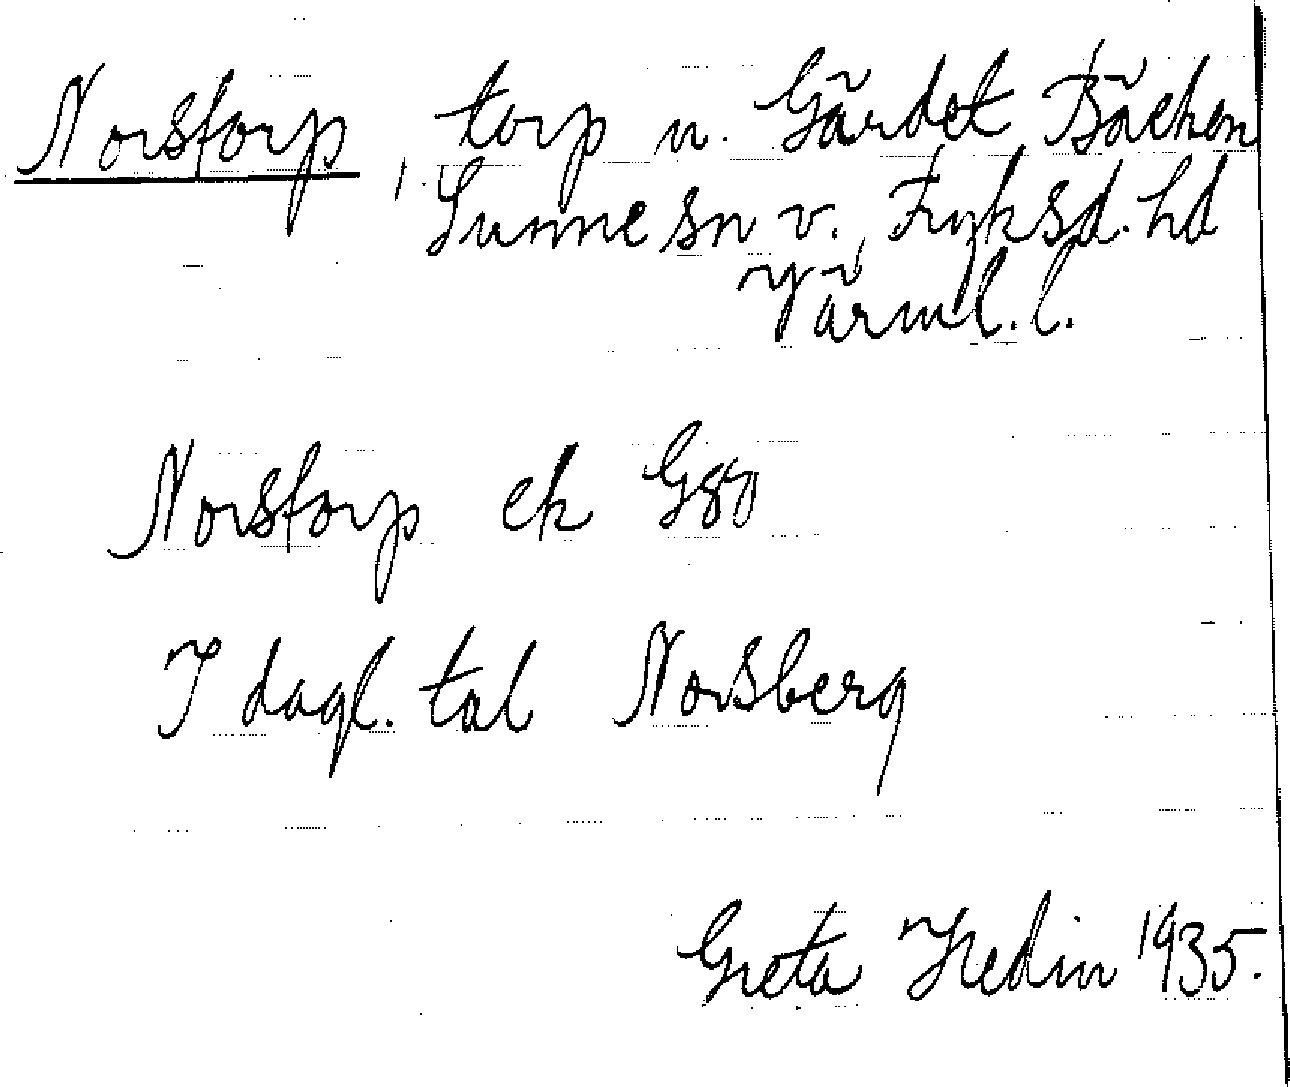 Norstorp, torp u. Gärdet Bäcken
Sunne sn v. Fryksd. hd
Värml. l.
Norstorp ek
I dagl. tal Norsberg
Greta Hedin 1935.